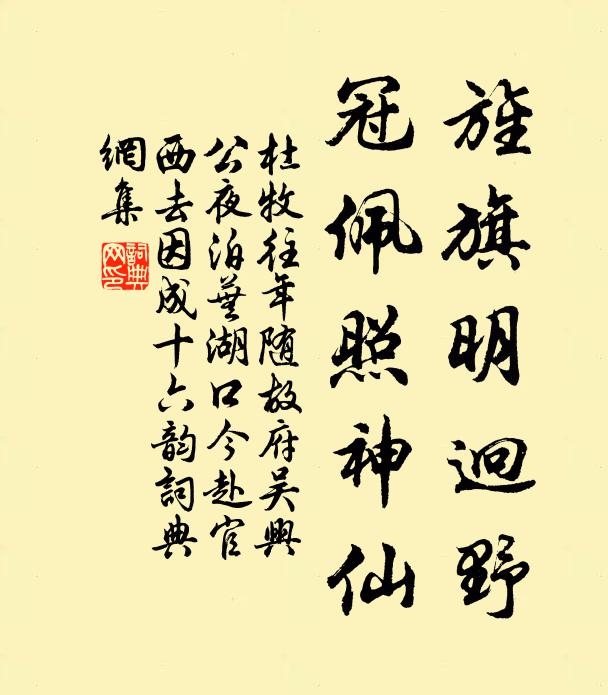 旌旗明迥野
冠佩照神仙
杜牧往年随故府吴興
公夜泊蕪湖口今赴官
西去因成十六韵詞典
網集
詞典网印